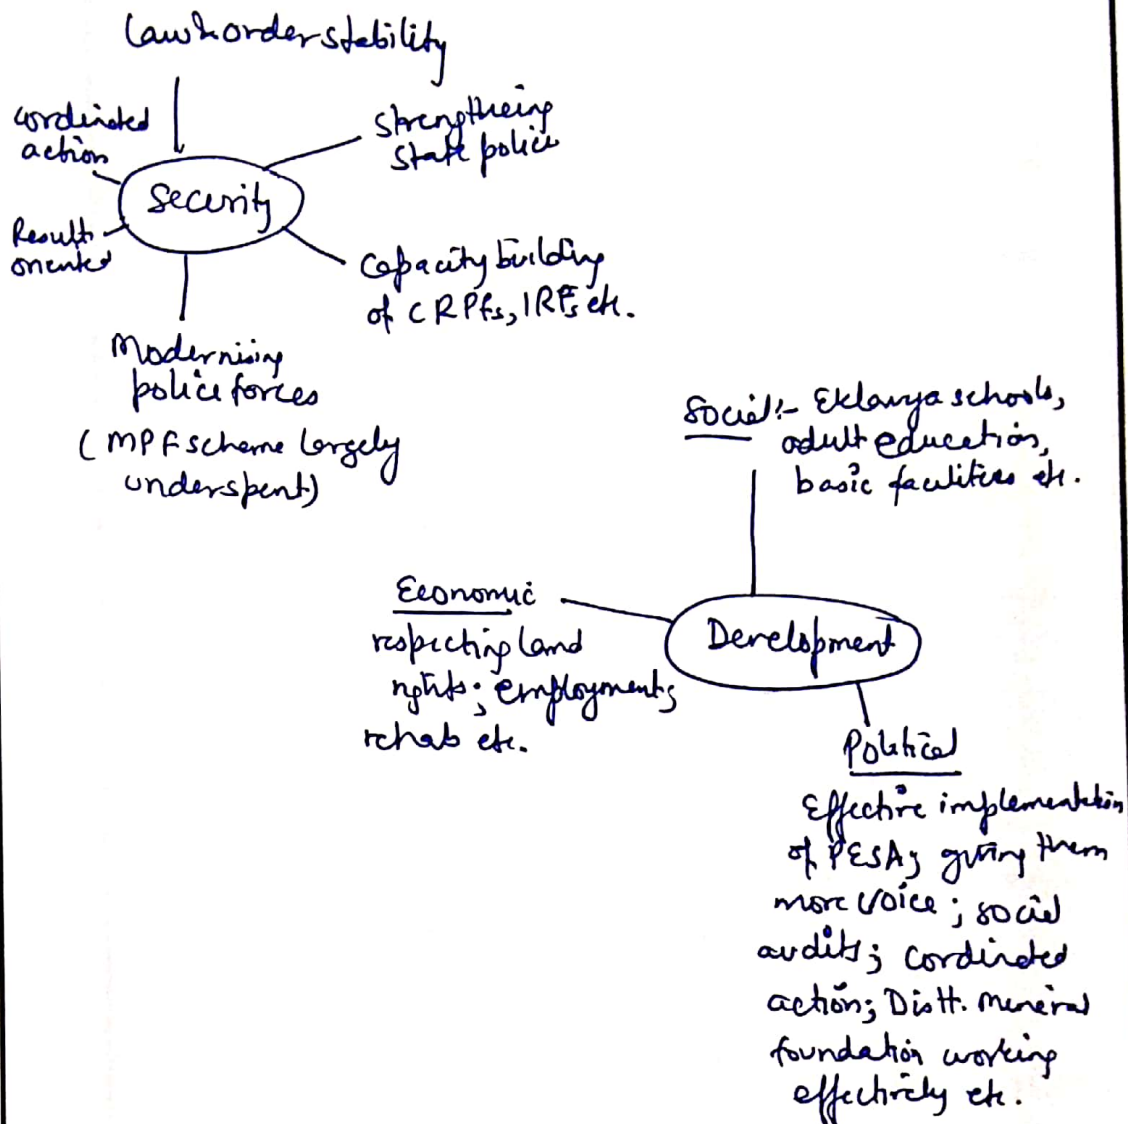 Law & order stability
cordinated
action
strengtheing
state police
Security
Result
oriented
Capacity building
of CRPFs, IRFs etc.
Modernising
police forces
(MPF scheme largely
underspent)
Social:- Eklavya schools,
adult education,
basic facilities etc.
Economic
respecting land
rights; employment;
rehab etc.
Development
Political
Effective implementation
of PESA; giving them
more voice; social
audits; cordinated
action; Distt. Mineral
foundation working
effectively etc.